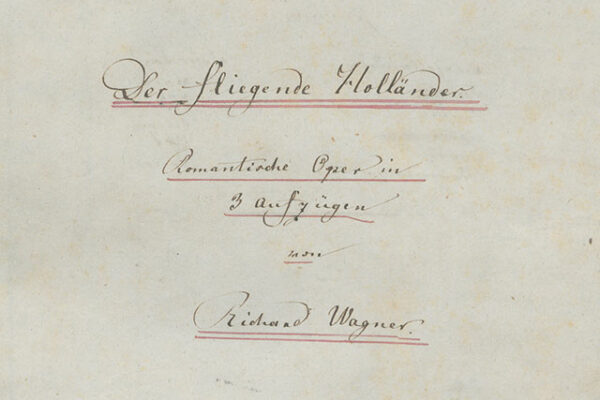 Der fliegende Holländer.
Romantische Oper in
3 Aufzügen
von
Richard Wagner.